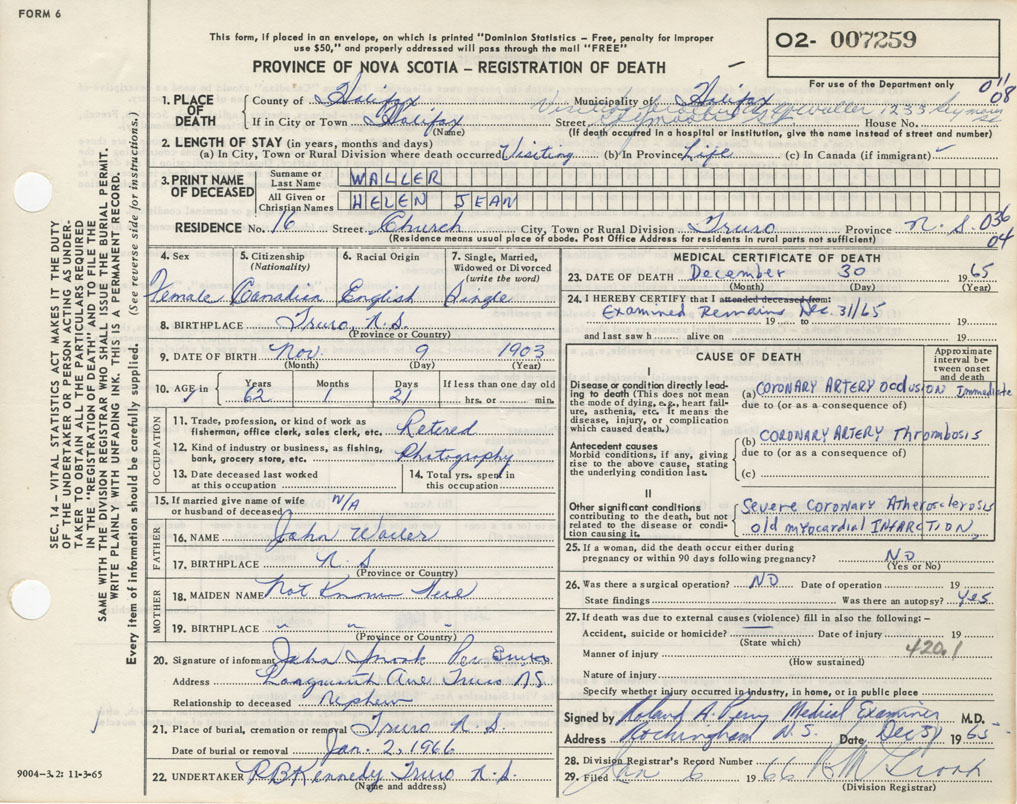 FORM 6
This form, if placed in an envelope, on which is printed "Dominion Statistics – Free, penalty for improper
use $50," and properly addressed will pass through the mail "FREE"
02- 007259
PROVINCE OF NOVA SCOTIA – REGISTRATION OF DEATH
For use of the Department only
011
08
1. PLACE OF DEATH
County of Halifax Municipality of Halifax
If in City or Town Halifax Street House No.
(Name) (If death occurred in a hospital or institution, give the name instead of street and number)
2. LENGTH OF STAY (in years, months and days)
(a) In City, Town or Rural Division where death occurred Visiting (b) In Province Life (c) In Canada (if immigrant) –
3. PRINT NAME OF DECEASED
Surname or Last Name WALLER
All Given or Christian Names HELEN JEAN
RESIDENCE No. 16 Street Church City, Town or Rural Division Truro Province N.S. 036
04
(Residence means usual place of abode. Post Office Address for residents in rural parts not sufficient)
4. Sex 5. Citizenship (Nationality) 6. Racial Origin 7. Single, Married, Widowed or Divorced (write the word)
Female Canadian English Single
8. BIRTHPLACE Truro, N.S.
(Province or Country)
9. DATE OF BIRTH Nov 9 1903
(Month) (Day) (Year)
10. AGE in Years Months Days If less than one day old
62 1 21 hrs. or min.
OCCUPATION
11. Trade, profession, or kind of work as
fisherman, office clerk, sales clerk, etc. Retired
12. Kind of industry or business, as fishing,
bank, grocery store, etc. Photography
13. Date deceased last worked at this occupation
14. Total yrs. spent in this occupation
15. If married give name of wife
or husband of deceased N/A
FATHER
16. NAME John Waller
17. BIRTHPLACE N.S
(Province or Country)
MOTHER
18. MAIDEN NAME Not Known Here
19. BIRTHPLACE " " "
(Province or Country)
20. Signature of informant John Per
Address Ave Truro N.S.
Relationship to deceased Nephew
21. Place of burial, cremation or removal Truro N.S.
Date of burial or removal Jan. 2, 1966
22. UNDERTAKER R B Kennedy Truro N.S.
(Name and address)
MEDICAL CERTIFICATE OF DEATH
23. DATE OF DEATH December 30 1965
(Month) (Day) (Year)
24. I HEREBY CERTIFY that I attended deceased from:
Examined Remains Dec. 31/65
19 to 19
and last saw h alive on 19
CAUSE OF DEATH
Approximate interval between onset and death
I
Disease or condition directly leading to death (This does not mean the mode of dying, e.g., heart failure, asthenia, etc. It means the disease, injury, or complication which caused death.)
(a) CORONARY ARTERY OCCLUSION Immediate
due to (or as a consequence of)
Antecedent causes
Morbid conditions, if any, giving rise to the above cause, stating the underlying condition last.
(b) CORONARY ARTERY Thrombosis
due to (or as a consequence of)
(c)
II
Other significant conditions
contributing to the death, but not related to the disease or condition causing it.
Severe Coronary Atherosclerosis
old myocardial INFARCTION
25. If a woman, did the death occur either during
pregnancy or within 90 days following pregnancy? NO
(Yes or No)
26. Was there a surgical operation? NO Date of operation 19
State findings Was there an autopsy? Yes
27. If death was due to external causes (violence) fill in also the following: –
Accident, suicide or homicide? Date of injury 19
(State which)
Manner of injury 420.1
(How sustained)
Nature of injury
Specify whether injury occurred in industry, in home, or in public place
Signed by Roland A. Perry Medical Examiner M.D.
Address Rockingham N.S. Date Dec 31 1965
28. Division Registrar's Record Number
29. Filed Jan 6 1966
(Division Registrar)
9004-3.2: 11-3-65
SEC. 14 – VITAL STATISTICS ACT MAKES IT THE DUTY
OF THE UNDERTAKER OR PERSON ACTING AS UNDER-
TAKER TO OBTAIN ALL THE PARTICULARS REQUIRED
IN THE "REGISTRATION OF DEATH" AND TO FILE THE
SAME WITH THE DIVISION REGISTRAR WHO SHALL ISSUE THE BURIAL PERMIT.
WRITE PLAINLY WITH UNFADING INK. THIS IS A PERMANENT RECORD.
Every item of information should be carefully supplied. (See reverse side for instructions.)